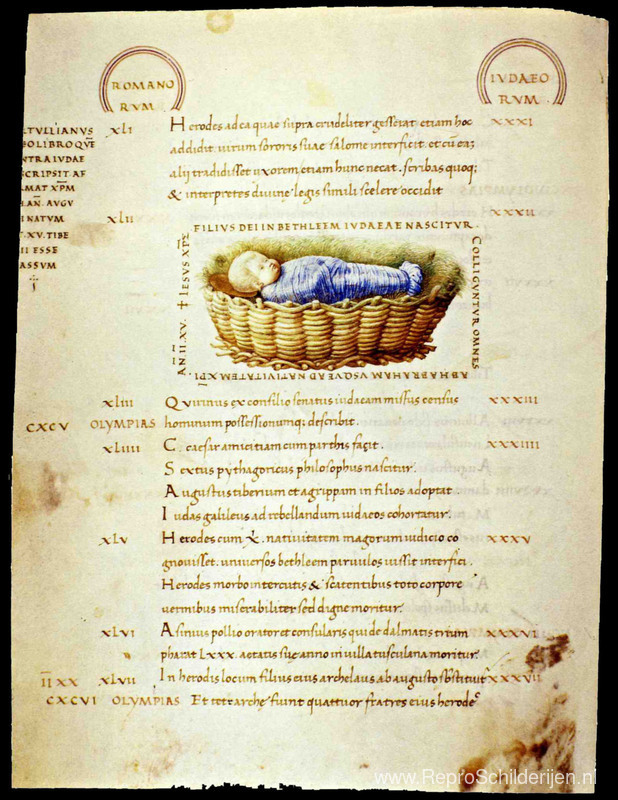 ROMANO
RVM
IVDAEO
RVM
TVLLIANVS
BO LIBRO QVE
NTRA IVDAE
CRIPSIT AF
MAT XPM
AN AVGV
NATVM
XV TIBE
II ESSE
ASSVM
XLI Herodes ad ca quae supra crudeliter gesserat etiam hoc XXXI
addidit. virum sororis suae salome interficit. et cu ea
alii tradidisset uxorem etiam hunc necat. scribas quoq;
& interpretes divine legis simili scelere occidit
XLII XXXII
FILIVS DEI IN BETHLEEM IVDAEAE NASCITVR.
COLLIGVNTVR OMNES
AB HABRAHAM VSQVE AD NATIVITATEM XPI
AN. II. XV. + IESVS XPS
XLIII Quirinus ex consilio senatus iudaeam missus census XXXIII
CXCV OLYMPIAS hominum possessionumq; describit.
XLIIII C. caesar amicitiam cum parthis facit. XXXIIII
Sextus pythagoricus philosophus nascitur.
Augustus tiberium et agrippam in filios adoptat
Iudas galileus ad rebellandum iudaeos cohortatur.
XLV Herodes cum X. nativitatem magorum iudicio co XXXV
gnovisset. universos bethleem parvulos iussit interfici.
Herodes morbo intercutis & scatentibus toto corpore
vermibus miserabiliter sed digne moritur.
XLVI Asinius pollio orator et consularis qui de dalmatis trium XXXVI
pharat LXXX. aetatis sue anno in villa tusculana moritur.
II XX XLVII In herodis locum filius eius archelaus ab augusto sbstituit XXXVII
CXCVI OLYMPIAS Et tetrarche fiunt quattuor fratres eius herode
www.ReproSchilderijen.nl